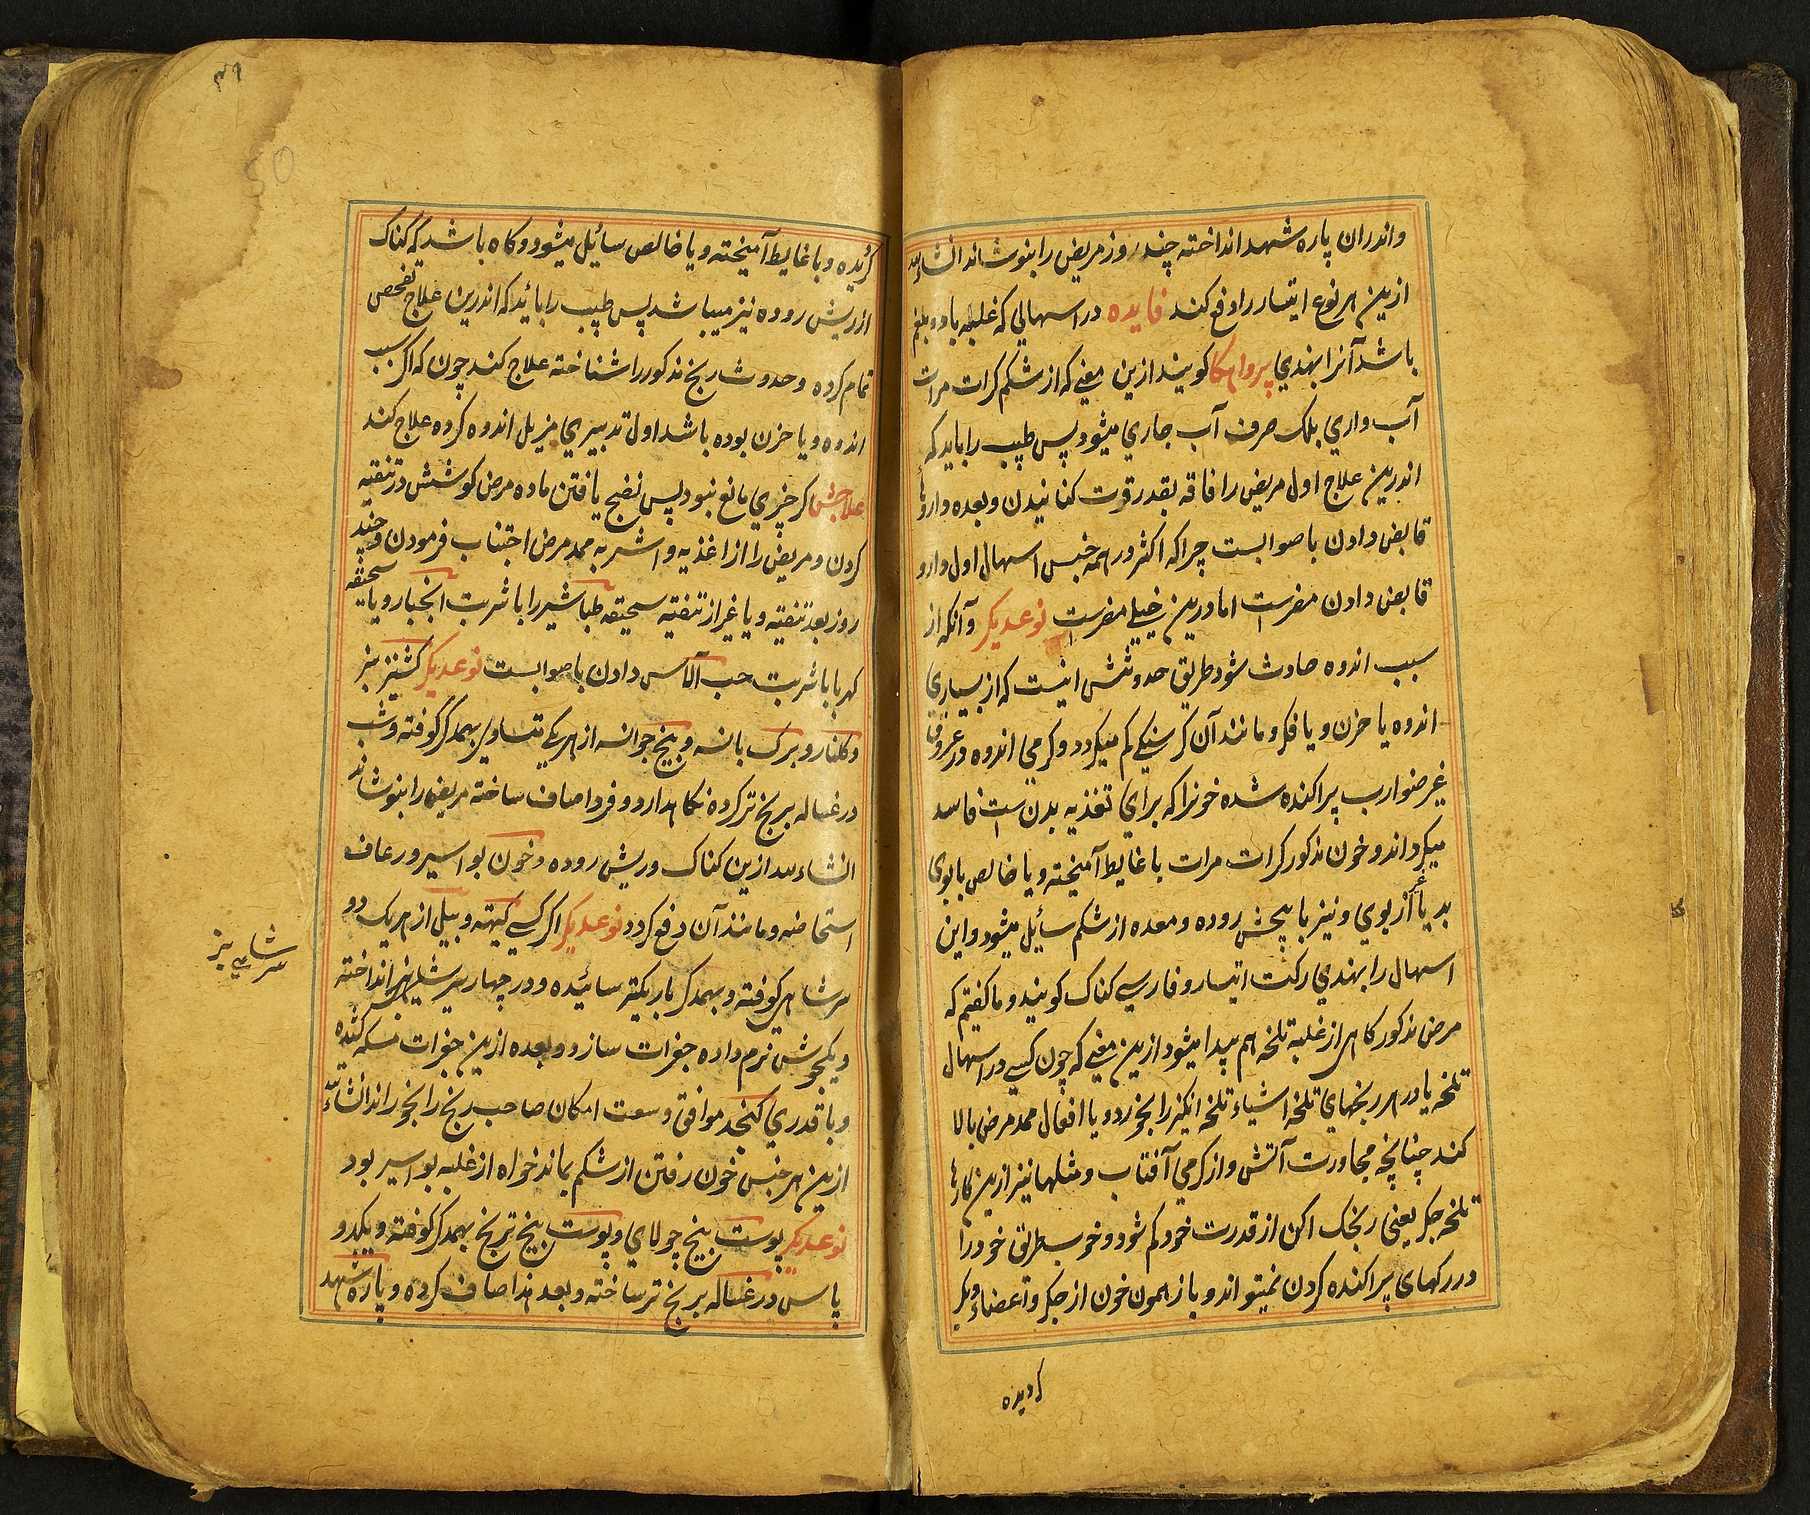 واندران پاره شهد انداخته چند روز مریض را بنوشاند انشاءالله
ازین هر نوع اتیسار را دفع کند فایده در اسهالی که غلبه باد و بلغم
باشد آنرا بهندی پرواهکا کویند ازین معنی که از شکم کرات مرات
آب واری بلک صرف آب جاری میشود پس طبیب را باید که
اندرین علاج اول مریض را فاقه بقدر قوت کنانیدن و بعده داروها
قابض دادن باصوابست چراکه اکثر در همه جنس اسهال اول دارو
قابض دادن مضرست اما درین خیلی مضرست نوعدیکر وآنکه از
سبب اندوه حادث شود طریق حدوثش اینست که از بسیاری
اندوه یا حزن و یا فکر و مانند آن کرسنکی کم میکردد و کرمی اندوه در عروق
غیر ضوارب پراکنده شده خونرا که برای تغذیه بدنست فاسد
میکرداند و خون مذکور کرات مرات با غایط آمیخته و یا خالص با بوی
بد یا غیر از بوی و نیز با پیچش روده و معده از شکم سائیل میشود و این
اسهال را بهندی رکت اتیسار و فارسی کناک کویند و ما کفتیم که
مرض مذکور کاهی از غلبه تلخه هم پیدا میشود ازین معنی که چون کسی در اسهال
تلخه یا در هر رنجهای تلخه اشیاء تلخه انکیز را بخورد و یا افعال ممد مرض بالا
کند چنانچه مجاورت آتش و از کرمی آفتاب و مثلها نیز ازین کارها
تلخه جکر یعنی رنجک اکن از قدرت خود کم شود و خو بطریق خود را
در رکهای پراکنده کردن نمیتواند و باز همون خون از جکر و اعضاء دیکر
کردیده
۴۹
50
کردیده و با غایط آمیخته و یا خالص سائیل میشود و کاه باشد که کناک
از ریش روده نیز میباشد پس طبیب را باید که اندرین علاج تفحص
تمام کرده و حدوث رنج مذکور را شناخته علاج کند چون که اکر سبب
اندوه و یا حزن بوده باشد اول تدبیری مزیل اندوه کرده علاج کند
علاجش اکر چیزی مانع نبود پس نضج یافتن ماده مرض کوشش در تنقیه
کردن و مریض را از اغذیه و اشربه ممد مرض اجتناب فرمودن و چند
روز بعد تنقیه و یا غیر از تنقیه سحیقه طباشیر را با شربت انجبار و یا سحیقه
کهربا با شربت حب الآس دادن باصوابست نوعدیکر کشنیز سبز
و کلنار و برک بانسه و بیخ جوانسه از هر یکی متساوی بهمدکر کوفته و شب
در غساله برنج تر کرده نکاهدارد و فردا صاف ساخته مریض را بنوشاند
انشاءالله ازین کناک و ریش روده و خون بواسیر و رعاف
استحاضه و مانند آن دفع کردد نوعدیکر اکر کسی کیته و بیل از هر یک دو
سرشاهی کوفته و بهمدکر باریکتر سائیده و در چهار سیر شیر انداخته
و یکجوش نرم داده جغرات سازد و بعده ازین جغرات مسکه کشیده
و با قدری کنجد موافق وسعت امکان صاحب رنج را بخوراند انشاءالله
ازین هر جنس خون رفتن از شکم بماند خواه از غلبه بواسیر بود
نوعدیکر پوست بیخ چولای و پوست بیخ ترنج بهمدکر کوفته و یکدو
پاس در غساله برنج تر ساخته و بعد هذا صاف کرده و پاره شهد